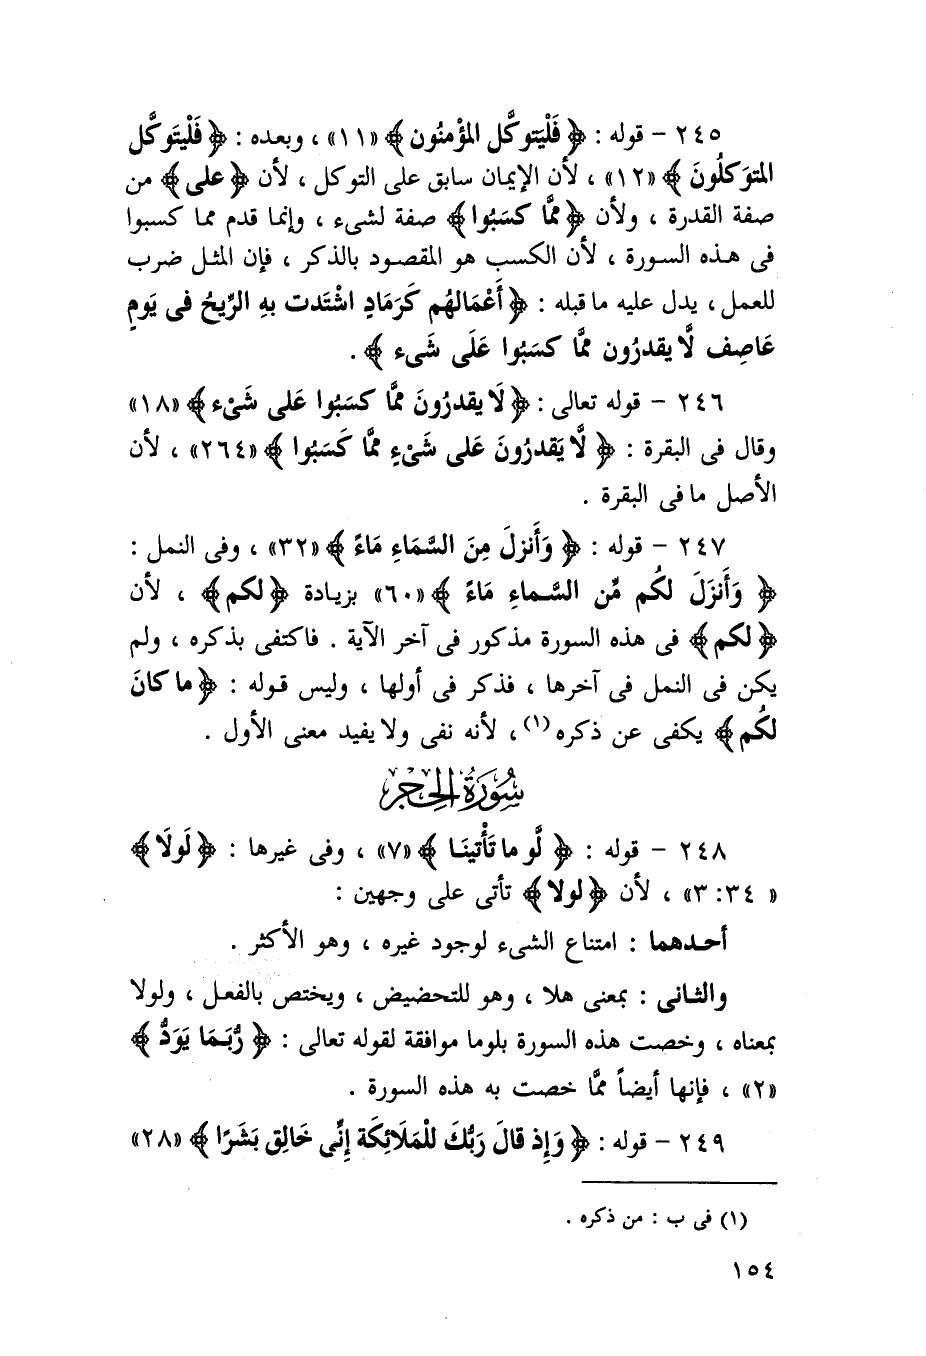 ٢٤٥ – قوله : ﴿ فَلْيَتوكَّل المؤْمنُون ﴾ «١١» ، وبعده : ﴿ فَلْيتَوكَّل
المتوَكلُونَ ﴾ «١٢» ، لأن الإيمان سابق على التوكل ، لأن ﴿ على ﴾ من
صفة القدرة ، ولأن ﴿ ممَّا كسَبُوا ﴾ صفة لشىء ، وإنما قدم مما كسبوا
فى هذه السورة ، لأن الكسب هو المقصود بالذكر ، فإن المثل ضرب
للعمل ، يدل عليه ما قبله : ﴿ أَعْمَالهُم كَرَمَادٍ اشْتَدت بهِ الرِّيحُ فى يَومٍ
عَاصِف لَّا يقدرُون ممَّا كسَبُوا عَلَى شَىء ﴾ .
٢٤٦ – قوله تعالى : ﴿ لَا يقدرُونَ ممَّا كسَبُوا عَلى شَىْء ﴾ «١٨»
وقال فى البقرة : ﴿ لَّا يَقدرُونَ عَلى شَىْءٍ ممَّا كَسَبُوا ﴾ «٢٦٤» ، لأن
الأصل ما فى البقرة .
٢٤٧ – قوله : ﴿ وَأَنزلَ مِنَ السَّمَاءِ مَاءً ﴾ «٣٢» ، وفى النمل :
﴿ وَأَنزَلَ لكُم مِّن السَّماءِ مَاءً ﴾ «٦٠» بزيادة ﴿ لكم ﴾ ، لأن
﴿ لكم ﴾ فى هذه السورة مذكور فى آخر الآية . فاكتفى بذكره ، ولم
يكن فى النمل فى آخرها ، فذكر فى أولها ، وليس قوله : ﴿ ما كانَ
لكُم ﴾ يكفى عن ذكره (١) ، لأنه نفى ولا يفيد معنى الأول .
سُورَةُ الحِجْر
٢٤٨ – قوله : ﴿ لَّو ما تَأْتينَا ﴾ «٧» ، وفى غيرها : ﴿ لَولَا ﴾
« ٣٤ : ٣» ، لأن ﴿ لولا ﴾ تأتى على وجهين :
أحدهما : امتناع الشىء لوجود غيره ، وهو الأكثر .
والثانى : بمعنى هلا ، وهو للتحضيض ، ويختص بالفعل ، ولولا
بمعناه ، وخصت هذه السورة بلوما موافقة لقوله تعالى : ﴿ رُّبَمَا يَوَدُّ ﴾
«٢» ، فإنها أيضاً ممَّا خصت به هذه السورة .
٢٤٩ – قوله : ﴿ وَإِذ قالَ رَبُّكَ للْمَلَائِكَة إِنِّى خَالِق بَشَرًا ﴾ «٢٨»
(١) فى ب : من ذكره .
١٥٤